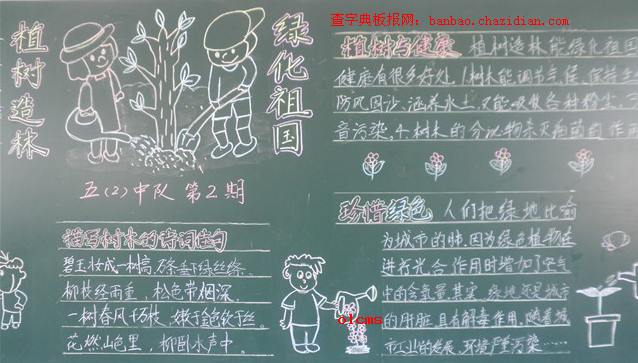 查字典板报网：banbao.chazidian.com
植树造林
绿化祖国
五(2)中队 第2期
描写树木的诗词佳句
碧玉妆成一树高，万条垂下绿丝绦。
柳枝经雨重，松色带烟深。
一树春风千万枝，嫩于金色软于丝。
花燃山色里，柳卧水声中。
植树与健康 植树造林能绿化祖国
健康有很多好处。1树木能调节气候，保持生
防风固沙，涵养水土，又能吸收各种粉尘，
音污染，4树木的分泌物杀灭细菌的作
珍惜绿色 人们把绿地比喻
为城市的肺，因为绿色植物在
进行光合作用时增加了空气
中的含氧量。其实，绿地还是城市
的肝脏，具有解毒作用，随着城
市工业的发展，环境严重污染……
olcms